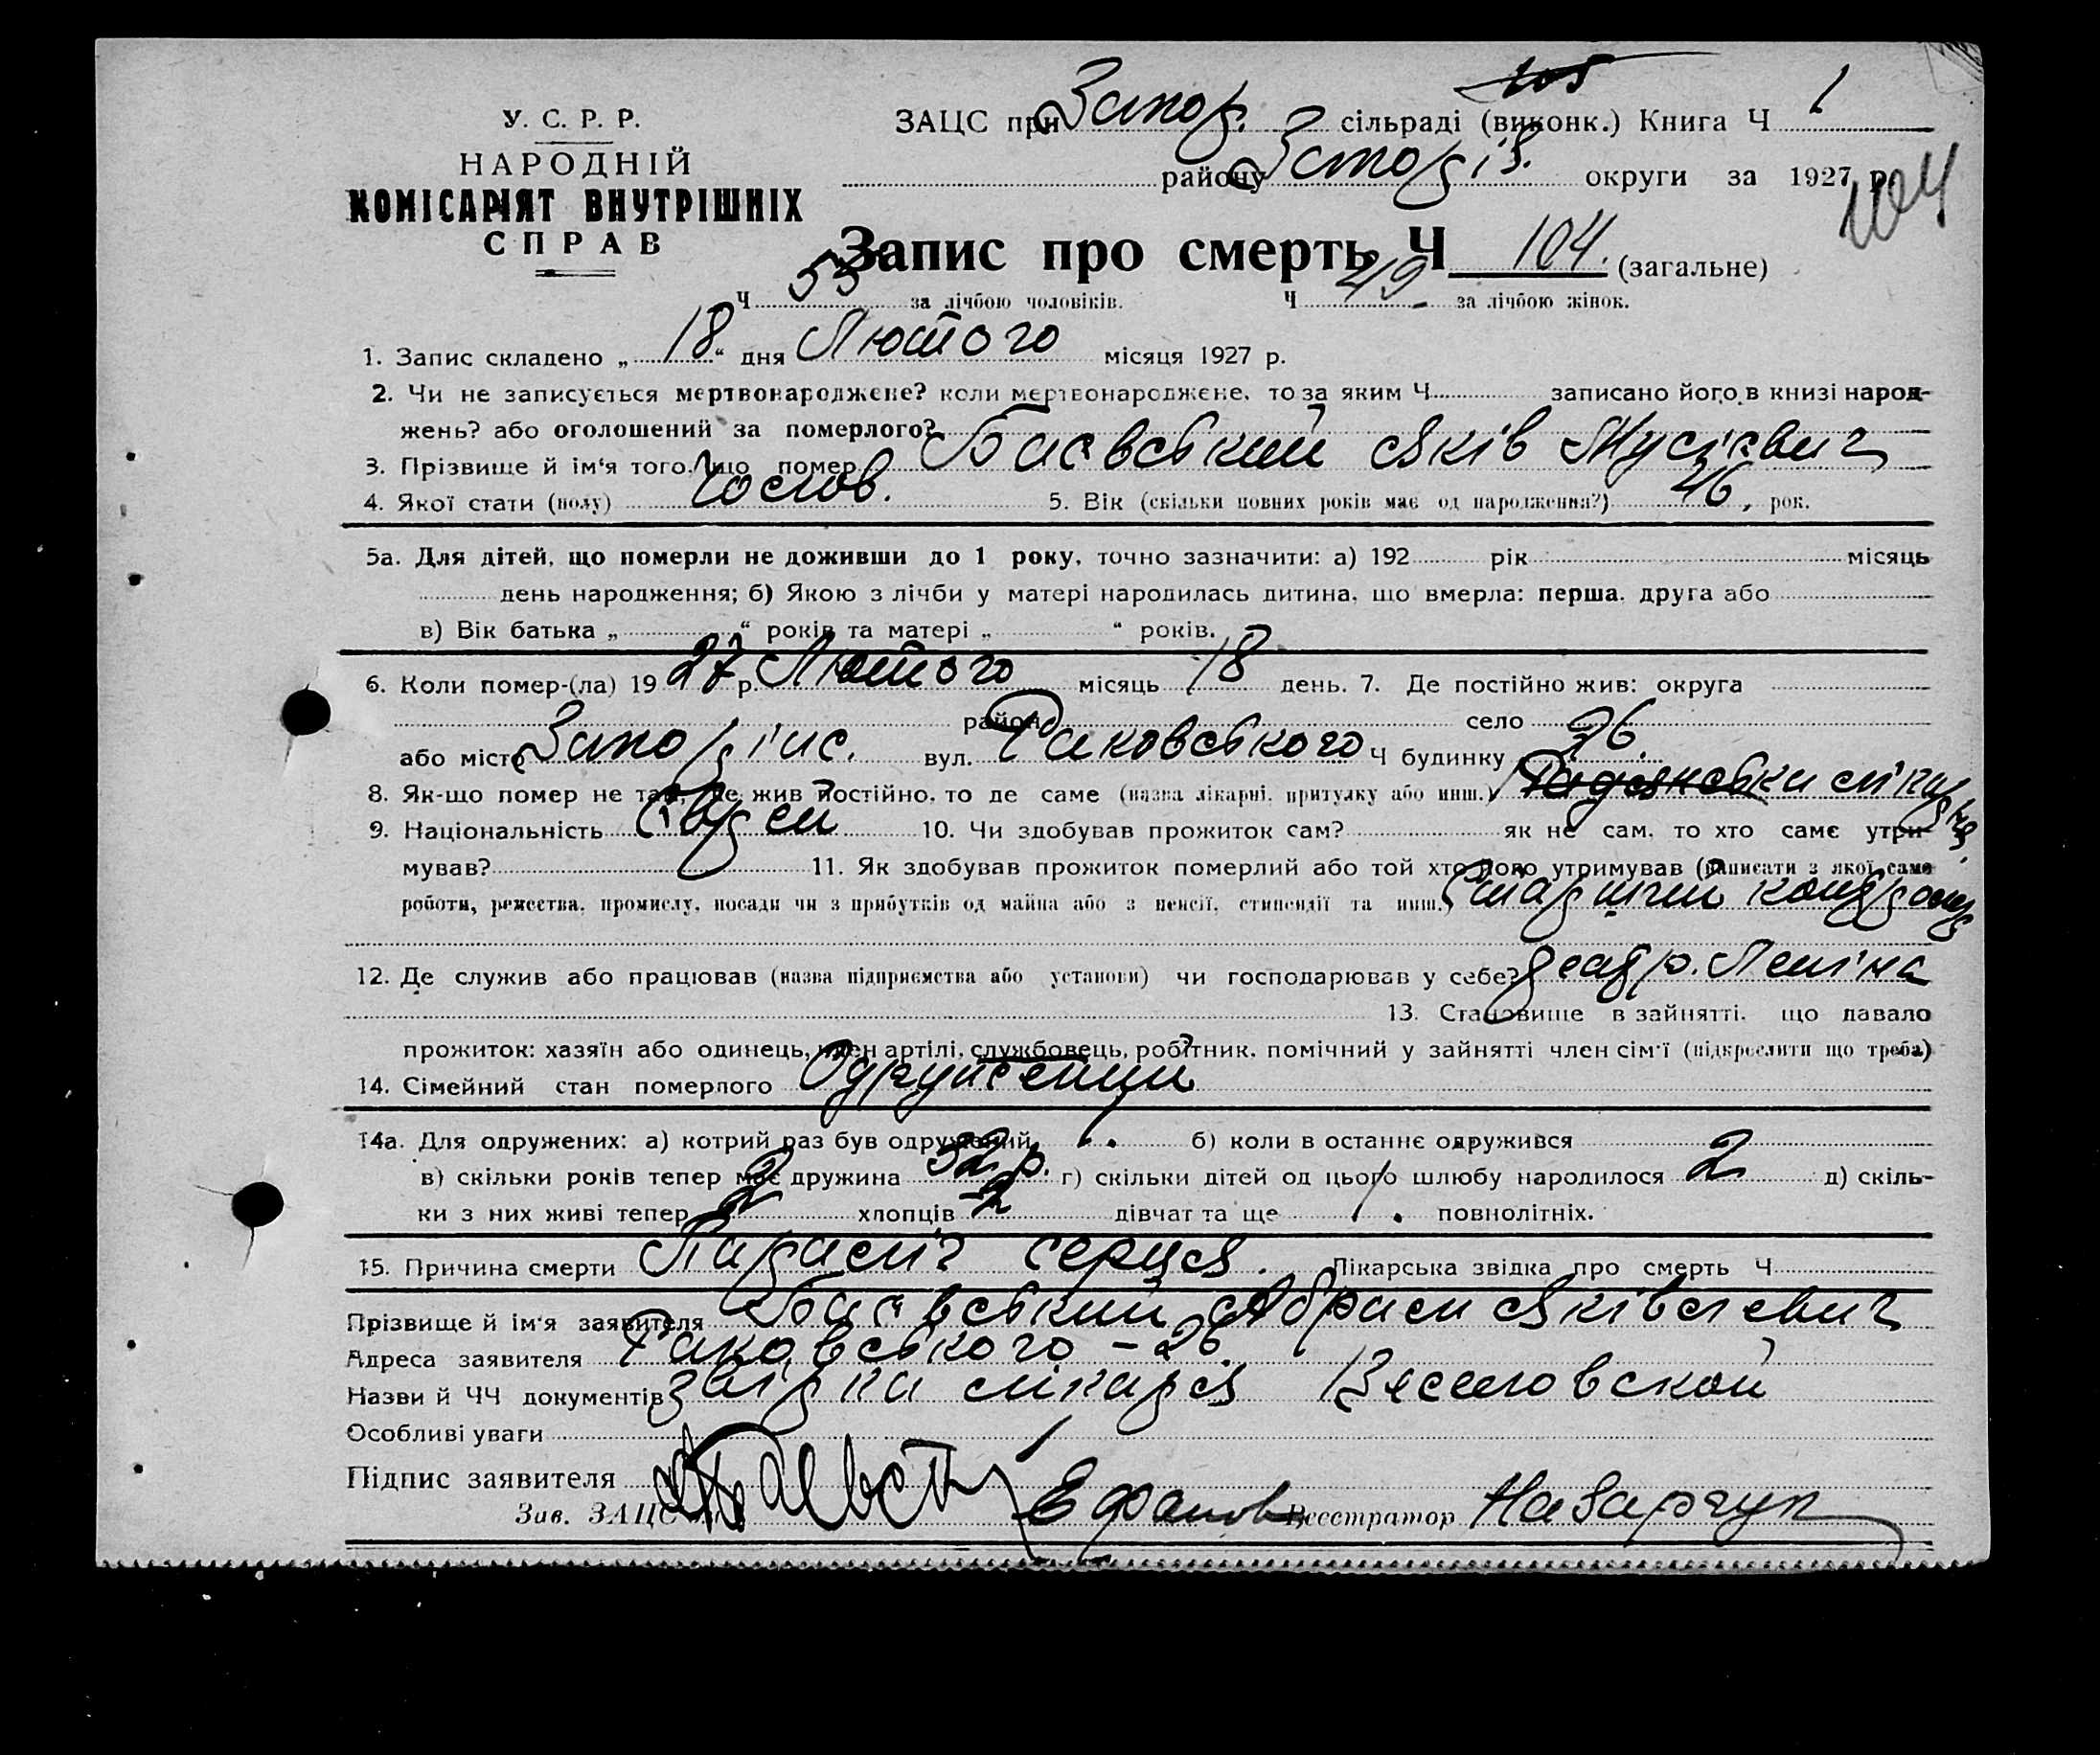 У. С. Р. Р.
НАРОДНІЙ
КОМІСАРІЯТ ВНУТРІШНІХ
СПРАВ
105
ЗАЦС при Запор. сільраді (виконк.) Книга Ч 1
району Запоріз. округи за 1927 р.
104
Запис про смерть Ч 104. (загальне)
Ч 55 за лічбою чоловіків. Ч 49 за лічбою жінок.
1. Запис складено „ 18 “ дня Лютого місяця 1927 р.
2. Чи не записується мертвонароджене? коли мертвонароджене, то за яким Ч записано його в книзі народ-
жень? або оголошений за померлого?
3. Прізвище й ім'я того, що помер Баєвський Яків Мусієвич
4. Якої стати (полу) Чолов. 5. Вік (скільки повних років має од народження?) 46, рок.
5а. Для дітей, що померли не доживши до 1 року, точно зазначити: а) 192 рік місяць
день народження; б) Якою з лічби у матері народилась дитина, що вмерла: перша, друга або
в) Вік батька „ “ років та матері „ “ років.
6. Коли помер-(ла) 1927 р. Лютого місяць 18 день. 7. Де постійно жив: округа
район село
або місто Запоріжє. вул. Раковського Ч будинку 26.
8. Як-що помер не там, де жив постійно, то де саме (назва лікарні, притулку або инш.)
9. Національність Єврей 10. Чи здобував прожиток сам? як не сам, то хто самє утри-
мував? 11. Як здобував прожиток померлий або той хто його утримував (написати з якої саме
роботи, ремества, промислу, посади чи з прибутків од майна або з пенсії, стипендії та инш.)
12. Де служив або працював (назва підприємства або установи) чи господарював у себе? театр. Леніна
13. Становище в зайнятті, що давало
прожиток: хазяїн або одинець, член артілі, службовець, робітник, помічний у зайнятті член сім'ї (підкреслити що треба)
14. Сімейний стан померлого Одружений
14а. Для одружених: а) котрий раз був одружений б) коли в останнє одружився
в) скільки років тепер має дружина 32 р. г) скільки дітей од цього шлюбу народилося 2 д) скіль-
ки з них живі тепер 2 хлопців 2 дівчат та ще повнолітніх.
15. Причина смерти Параліч серця. Лікарська звідка про смерть Ч
Прізвище й ім'я заявителя Баєвський Абрам Яківлевич
Адреса заявителя Раковського - 26.
Назви й ЧЧ документів звідка лікаря
Особливі уваги
Підпис заявителя
Зав. ЗАЦС'ом Реєстратор Назарчук